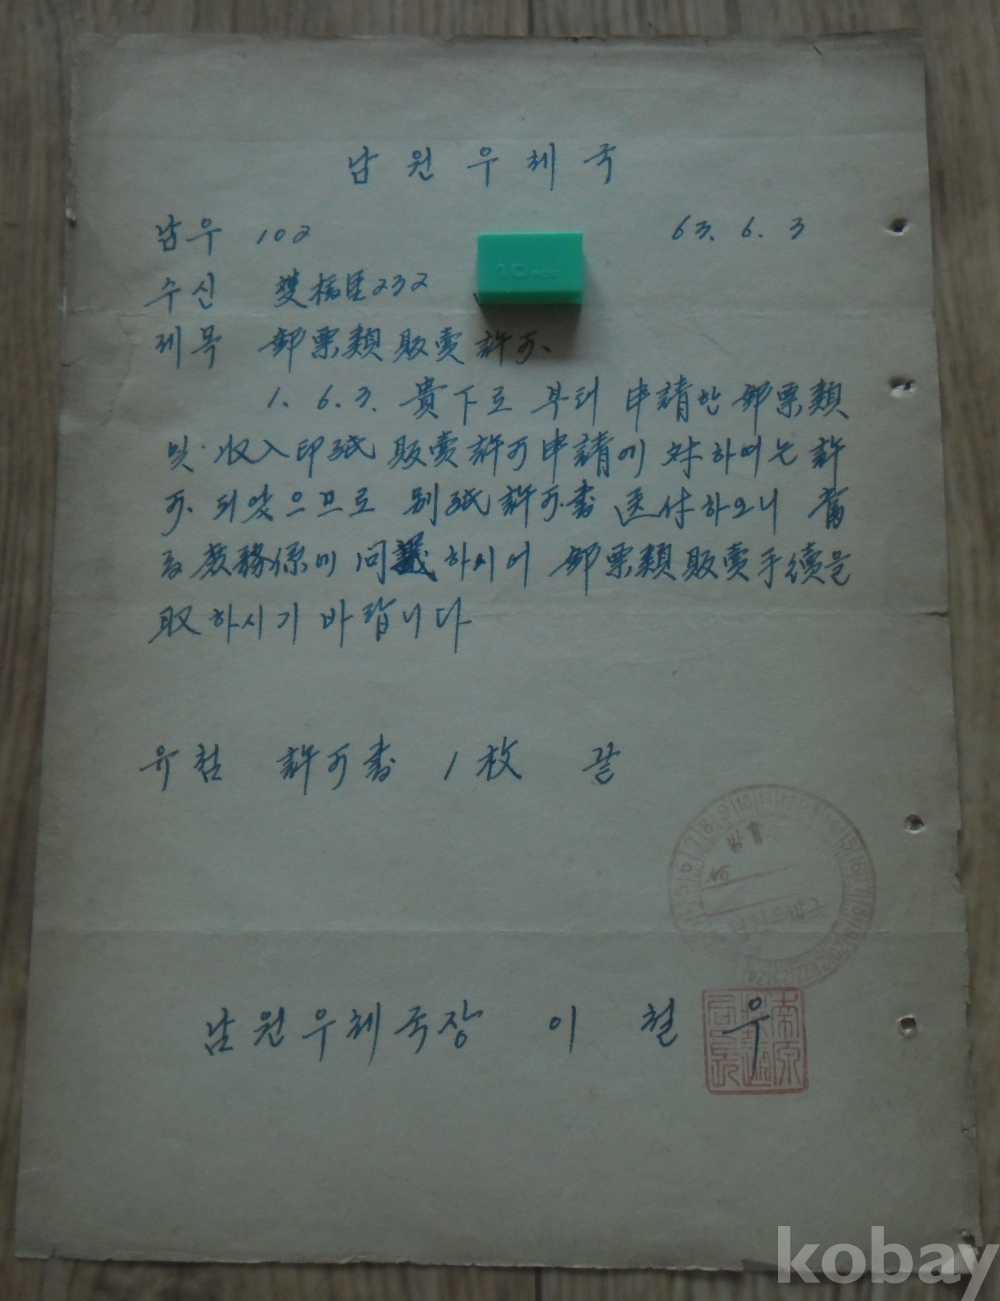 남원우체국
남우 102 63. 6. 3
수신 雙橋里232
제목 郵票類販賣許可.
1. 6.3. 貴下로 부터 申請한 郵票類
및 收入印紙 販賣許可申請에 対하여는 許
可 되었으므로 別紙許可書 送付하오니 當
務係에 하시어 郵票類販賣手續을
取하시기 바랍니다
유첨 許可書 1枚 끝
남원우체국장 이 철 우
kobay